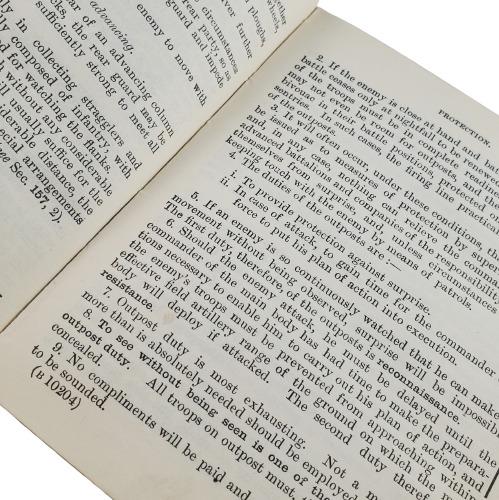 advancing.
enemy to move with
rear of an advancing column
the rear guard may be
sufficiently strong to meet all
in collecting stragglers and
composed of infantry, with
for watching the flanks,
without any considerable
will usually suffice for the
considerable distance, the
special arrangements
see Sec. 157, 2).
PROTECTION.
2. If the enemy is close at hand and
battle ceases only at nightfall to be
of the troops must be in complete readiness
may not even be room for outposts, and the
bivouac in their battle positions, protected
sentries. In such cases, the firing line practically
of the outposts.
3. It will often occur, under these conditions,
be issued as to measures of protection by superior
and, in any case, nothing can relieve the commanders
advanced battalions and companies of the responsibility
themselves from surprise, and, unless circumstances
keeping touch with the enemy by means of patrols.
4. The duties of the outposts are :—
i. To provide protection against surprise.
ii. In case of attack, to gain time for the commander
force to put his plan of action into execution.
5. If an enemy is so continuously watched that he can make
movement without being observed, surprise will be impossible
The first duty, therefore, of the outposts is reconnaissance.
6. Should the enemy attack, he must be delayed until the
commander of the main body has had time to make the prepara-
tions necessary to enable him to carry out his plan of action, and
the enemy's troops must be prevented from approaching within
effective field artillery range of the ground on which the
body will deploy if attacked. The second duty
resistance.
7. Outpost duty is most exhausting. Not a
more than is absolutely needed should be employed
outpost duty.
8. To see without being seen is one of
All troops on outpost must
concealed.
9. No compliments will be paid and
to be sounded.
(B 10204)